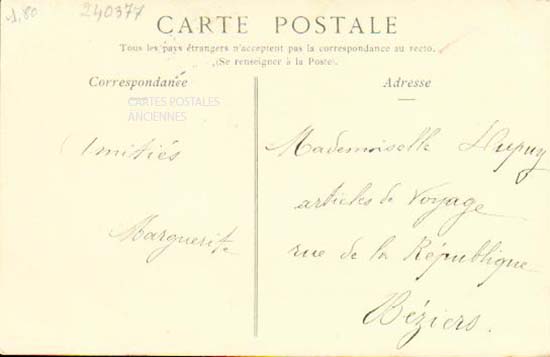 1,80 240377
CARTE POSTALE
Tous les pays étrangers n'acceptent pas la correspondance au recto.
(Se renseigner à la Poste).
Correspondance
CARTES POSTALES
ANCIENNES
Amitiés
Marguerite
Adresse
Mademoiselle Dupuy
articles de Voyage
rue de la République
Béziers.